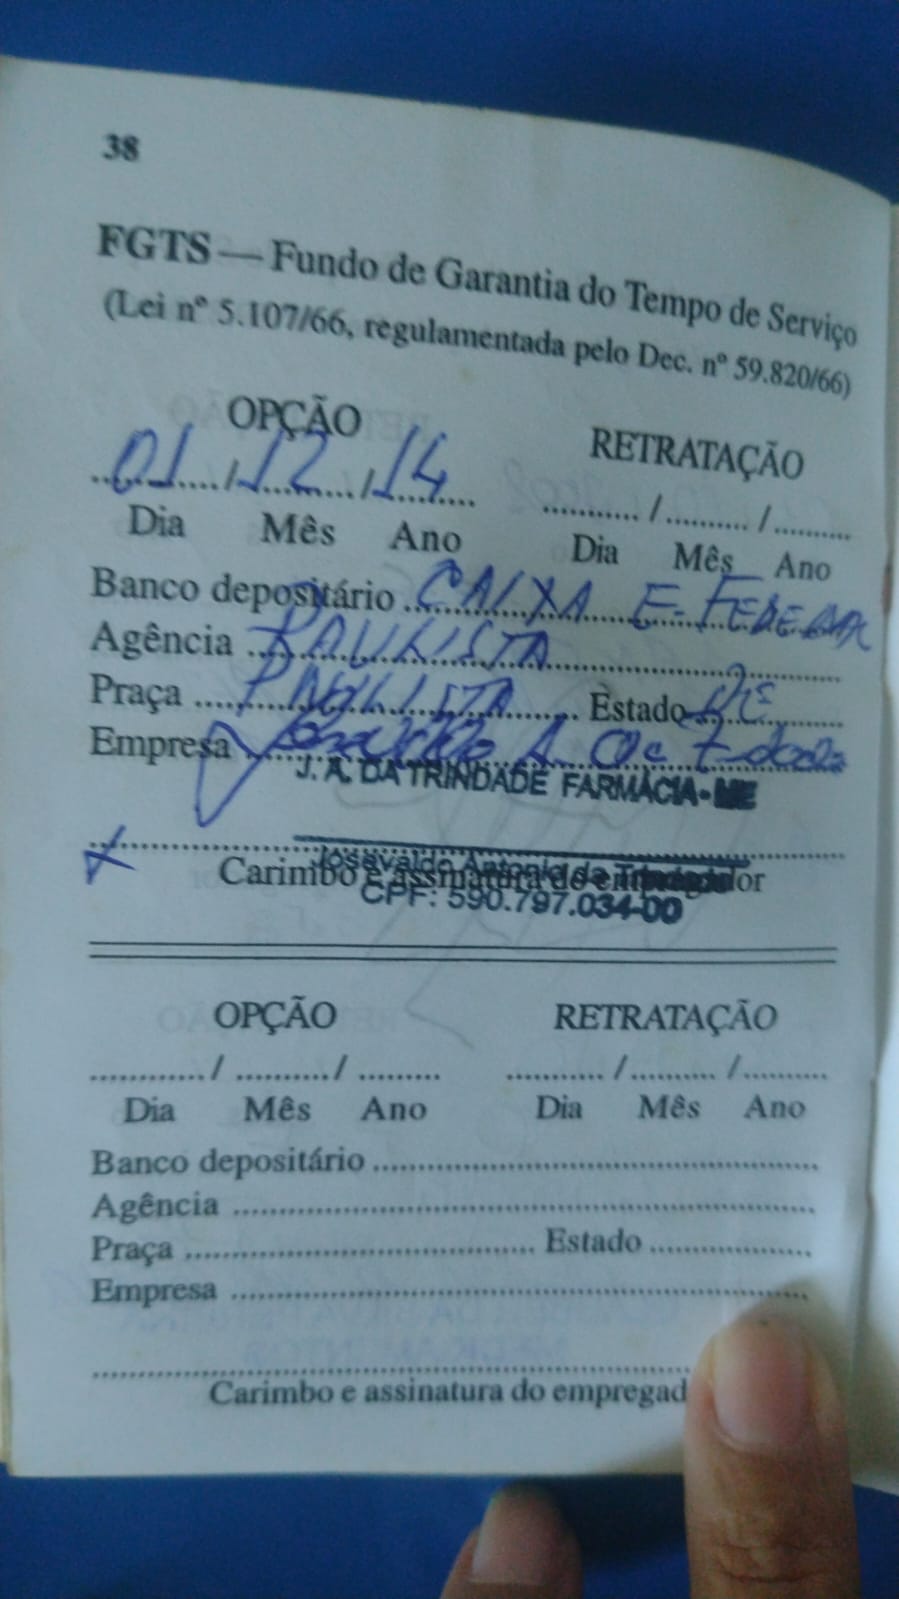 38
FGTS — Fundo de Garantia do Tempo de Serviço
(Lei nº 5.107/66, regulamentada pelo Dec. nº 59.820/66)
OPÇÃO RETRATAÇÃO
01/12/14 ........... / .......... / ..........
Dia Mês Ano Dia Mês Ano
Banco depositário CAIXA E. FEDERAL
Agência PAULISTA
Praça PAULISTA Estado PE
Empresa
J. A. DA TRINDADE FARMÁCIA - ME
Josevaldo Antonio da
Carimbo e assinatura do empregador
CPF: 590.797.034-00
OPÇÃO RETRATAÇÃO
............/ ........../ ......... .........../.........../..........
Dia Mês Ano Dia Mês Ano
Banco depositário
Agência
Praça Estado
Empresa
Carimbo e assinatura do empregad